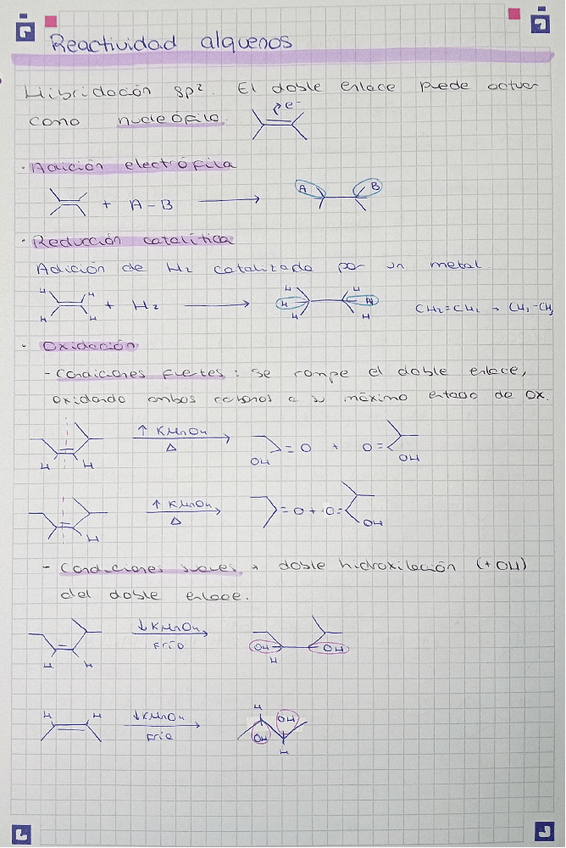 Reactividad alquenos
Hibridación sp². El doble enlace puede actuar
como nucleófilo.
pe⁻
· Adición electrófila
+ A-B
A
B
· Reducción catalítica
Adición de H₂ catalizado por un metal
H H
H H
+ H₂
H H
H H
H H
CH₂=CH₂ → CH₃-CH₃
· Oxidación
- Condiciones fuertes: Se rompe el doble enlace,
oxidando ambos carbonos a su máximo estado de ox.
H H
↑ KMnO₄
Δ
OH
=O + O=
OH
H
↑ KMnO₄
Δ
=O + O=
OH
- Condiciones suaves → doble hidroxilación (+OH)
del doble enlace.
H H
↓ KMnO₄
FRÍO
OH
OH
H
H H
↓ KMnO₄
Frío
H
OH
OH
H